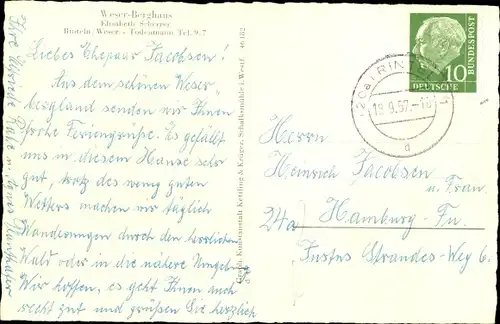 Weser-Berghaus
Elisabeth Scherrer
Rinteln / Weser - Todenmann Tel. 9 7
Liebes Ehepaar Jacobsen!
Aus dem schönen Weser-
bergland senden wir Ihnen
frohe Feriengrüße. Es gefällt
uns in diesem Hause sehr
gut, trotz des wenig guten
Wetters machen wir täglich
Wanderungen durch den herrlichen
Wald oder in die nähere Umgebung.
Wir hoffen, es geht Ihnen auch
recht gut und grüßen Sie herzlich
Ihre
u.
46 182
Cramers Kunstanstalt Kettling & Krüger, Schalksmühle i. Westf.
10
DEUTSCHE
BUNDESPOST
RINTELN
18.9.57.-18
d
Herrn
Heinrich Jacobsen
u. Frau
24a Hamburg-Fu.
Justus Strandes-Weg 6.